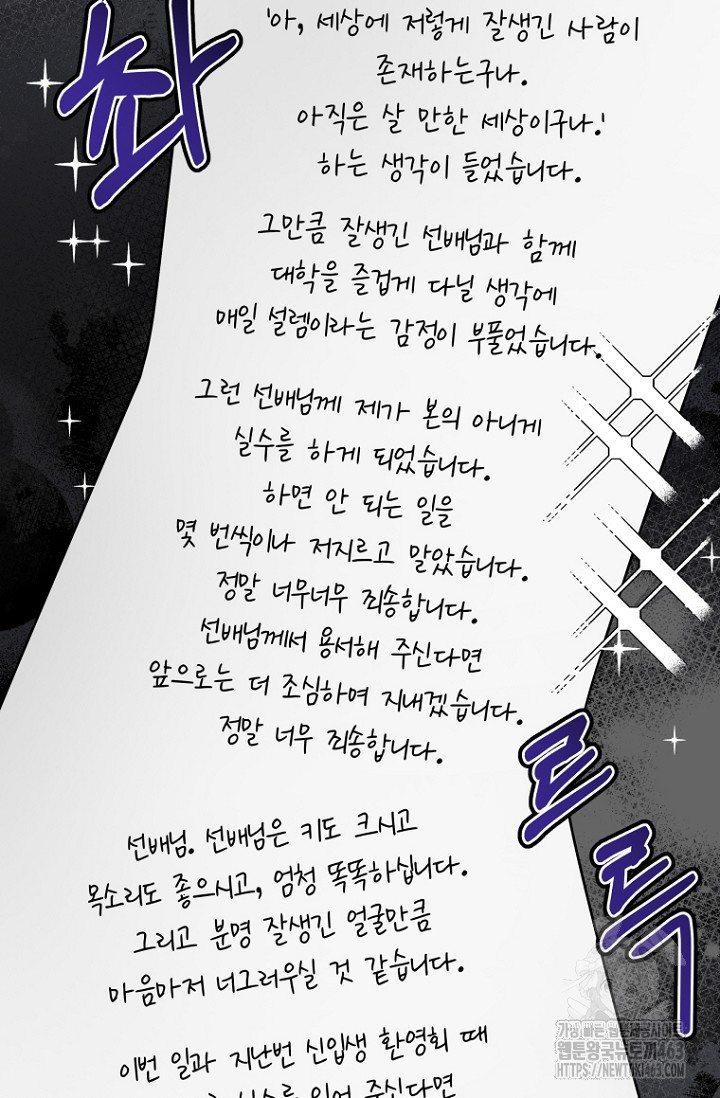 촤
'아, 세상에 저렇게 잘생긴 사람이
존재하는구나.
아직은 살 만한 세상이구나.'
하는 생각이 들었습니다.
그만큼 잘생긴 선배님과 함께
대학을 즐겁게 다닐 생각에
매일 설렘이라는 감정이 부풀었습니다.
그런 선배님께 제가 본의 아니게
실수를 하게 되었습니다.
하면 안 되는 일을
몇 번씩이나 저지르고 말았습니다.
정말 너무너무 죄송합니다.
선배님께서 용서해 주신다면
앞으로는 더 조심하며 지내겠습니다.
정말 너무 죄송합니다.
르륵
선배님. 선배님은 키도 크시고
목소리도 좋으시고, 엄청 똑똑하십니다.
그리고 분명 잘생긴 얼굴만큼
마음마저 너그러우실 것 같습니다.
이번 일과 지난번 신입생 환영회 때
실수를 잊어 주신다면
가장 빠른 웹툰제공사이트
웹툰왕국뉴토끼463
HTTPS://NEWTOKI463.COM